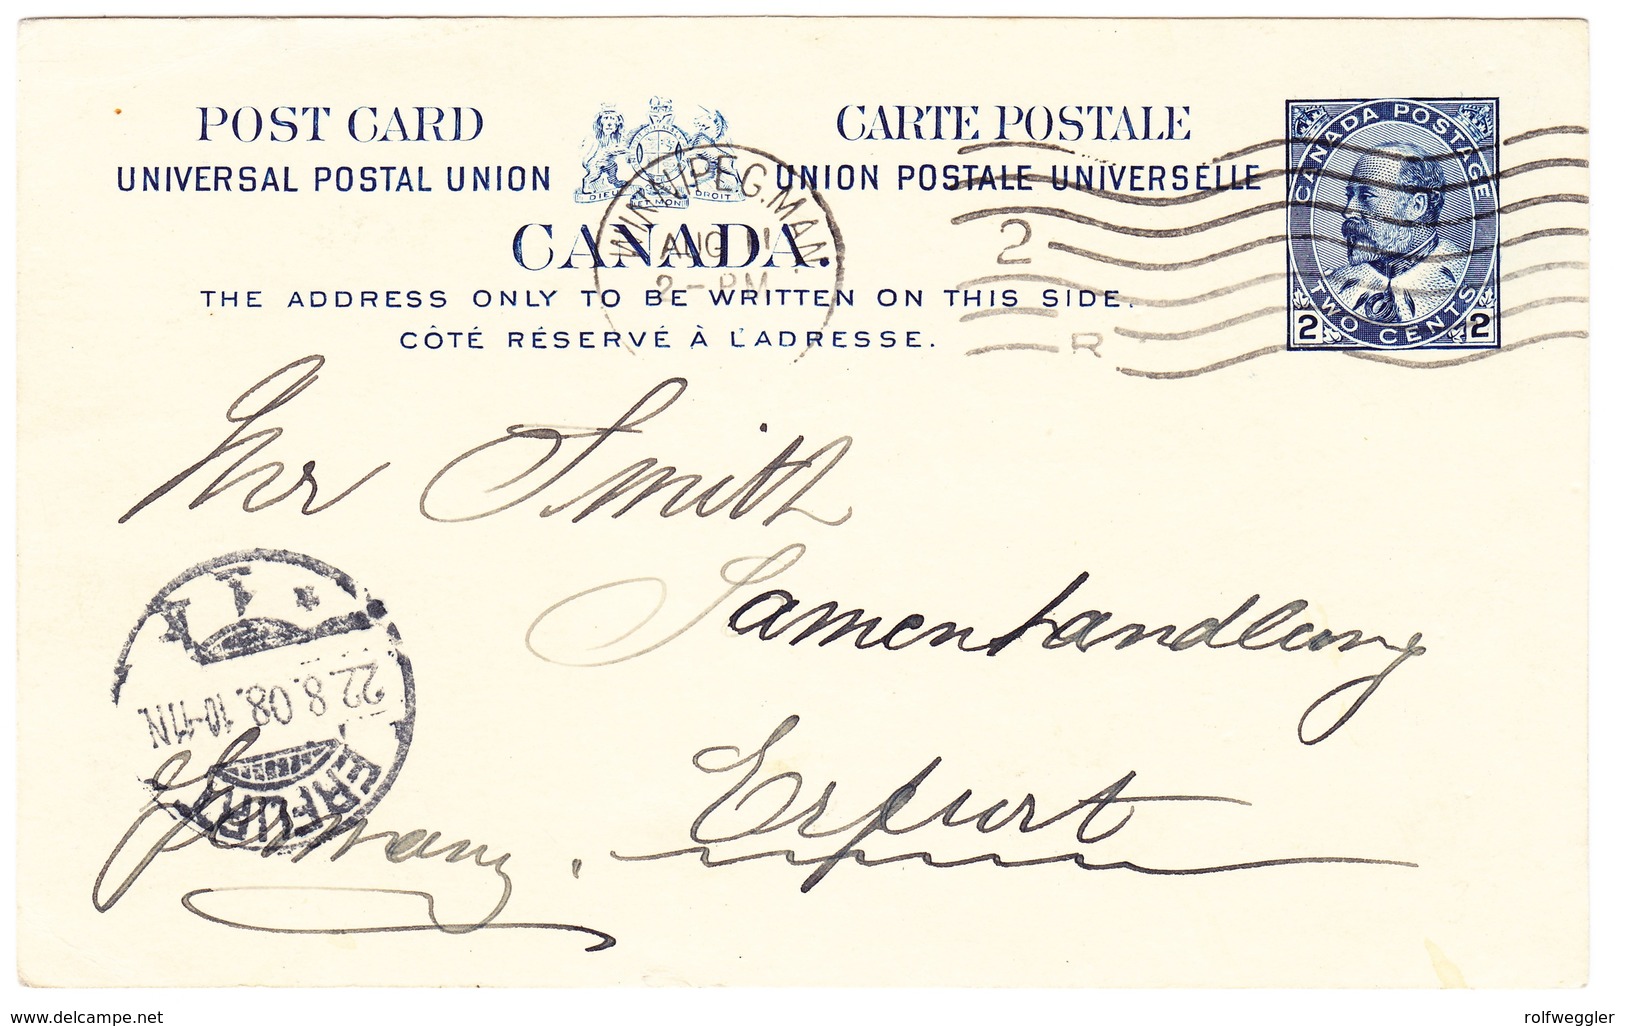 POST CARD
CARTE POSTALE
UNIVERSAL POSTAL UNION
UNION POSTALE UNIVERSELLE
DIEU ET MON DROIT
CANADA.
THE ADDRESS ONLY TO BE WRITTEN ON THIS SIDE.
CÔTÉ RÉSERVÉ À L'ADRESSE.
WINNIPEG. MAN.
AUG 11
2 - PM
2
R
CANADA POSTAGE
TWO CENTS
2 2
Hr Smith
Samenhandlung
Erfurt
Germany.
ERFURT
22.8.08. 10-11N
* 1 *
www.delcampe.net
rolfweggler